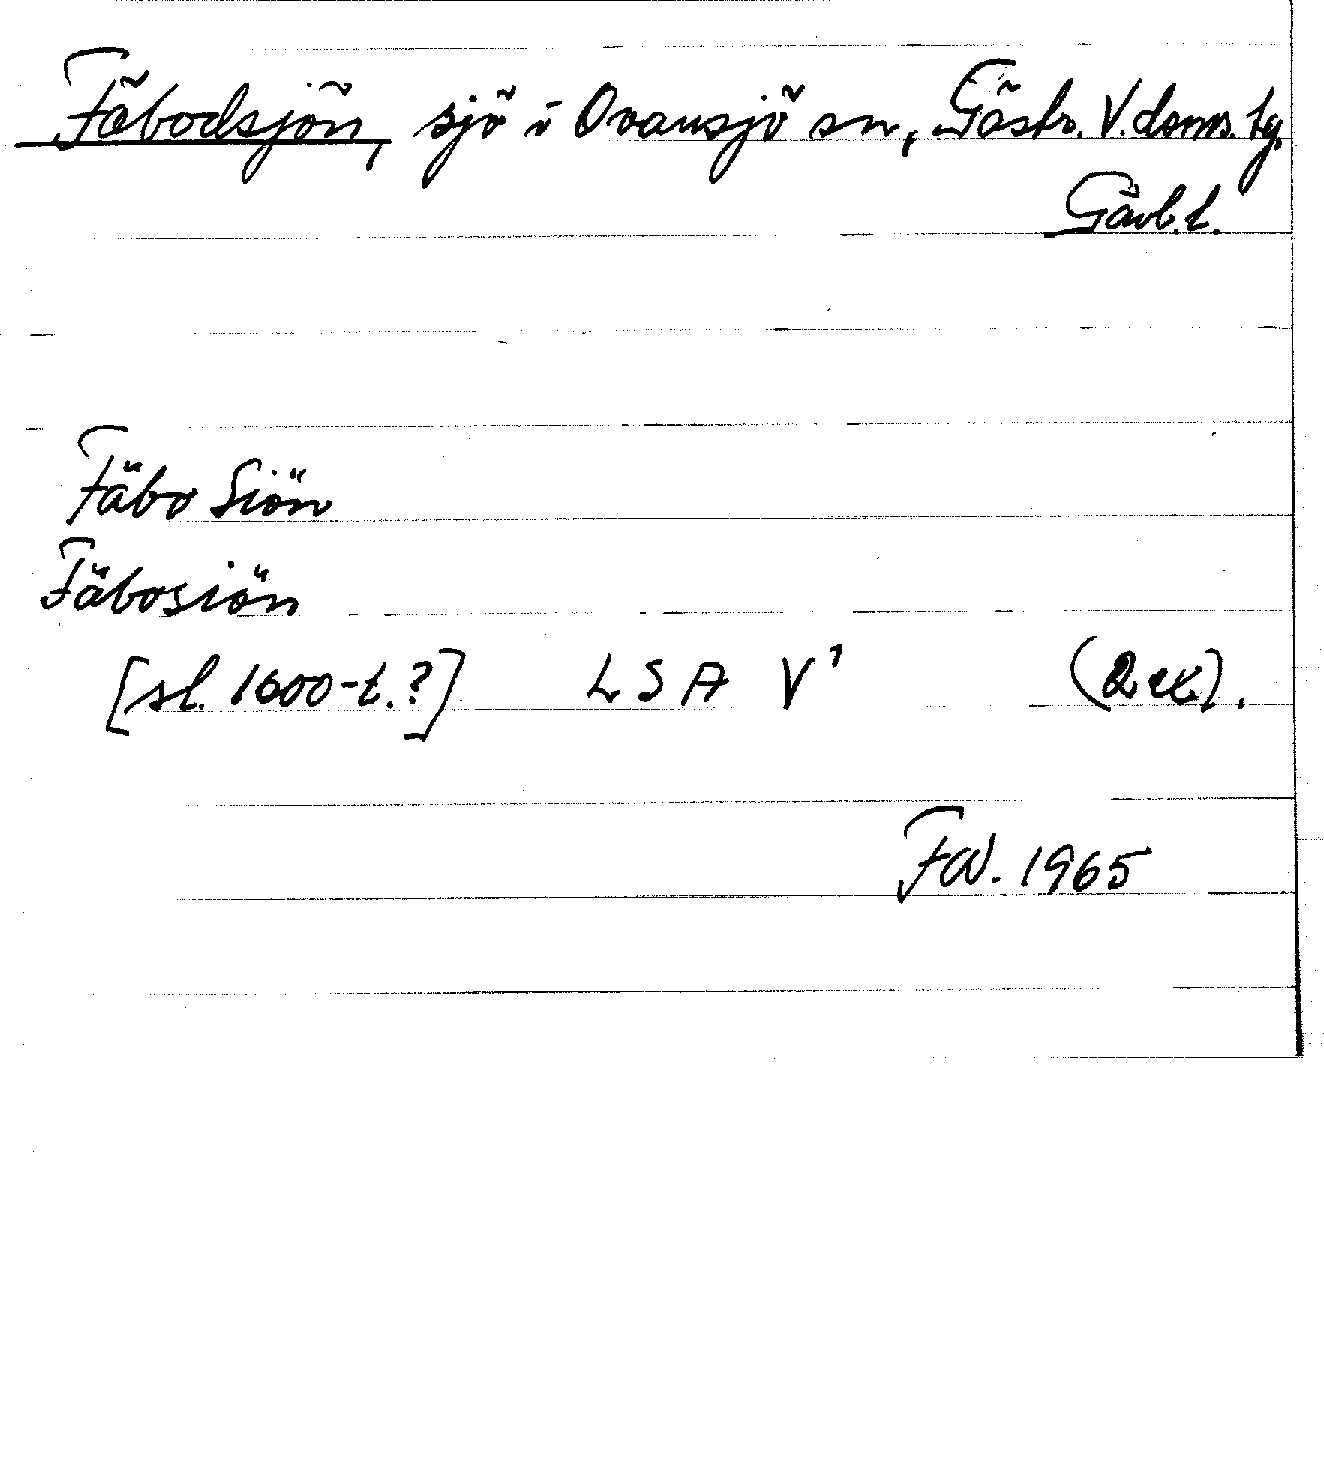 Fäbodsjön, sjö i Ovansjö sn, Gästr. V. doms. tg.
Gävl. l.
Fäbo Siön
Fäbosiön
[sl. 1600-t.?] LSA V¹ (2 ex).
FW. 1965